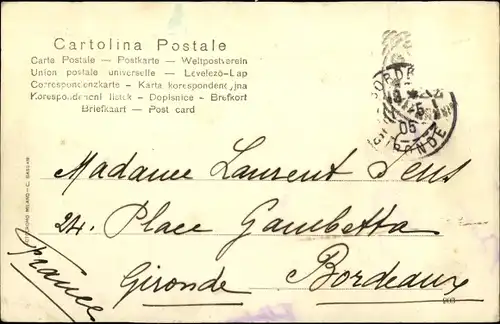 Cartolina Postale
Carte Postale — Postkarte — Weltpostverein
Union postale universelle — Levelező-Lap
Correspondenzkarte - Karta korespondencyjna
Korespondenční lístek - Dopisnice - Brefkort
Briefkaart — Post card
BORDEAUX
05
GIRONDE
Madame Laurent Sens
24. Place Gambetta
Gironde Bordeaux
France